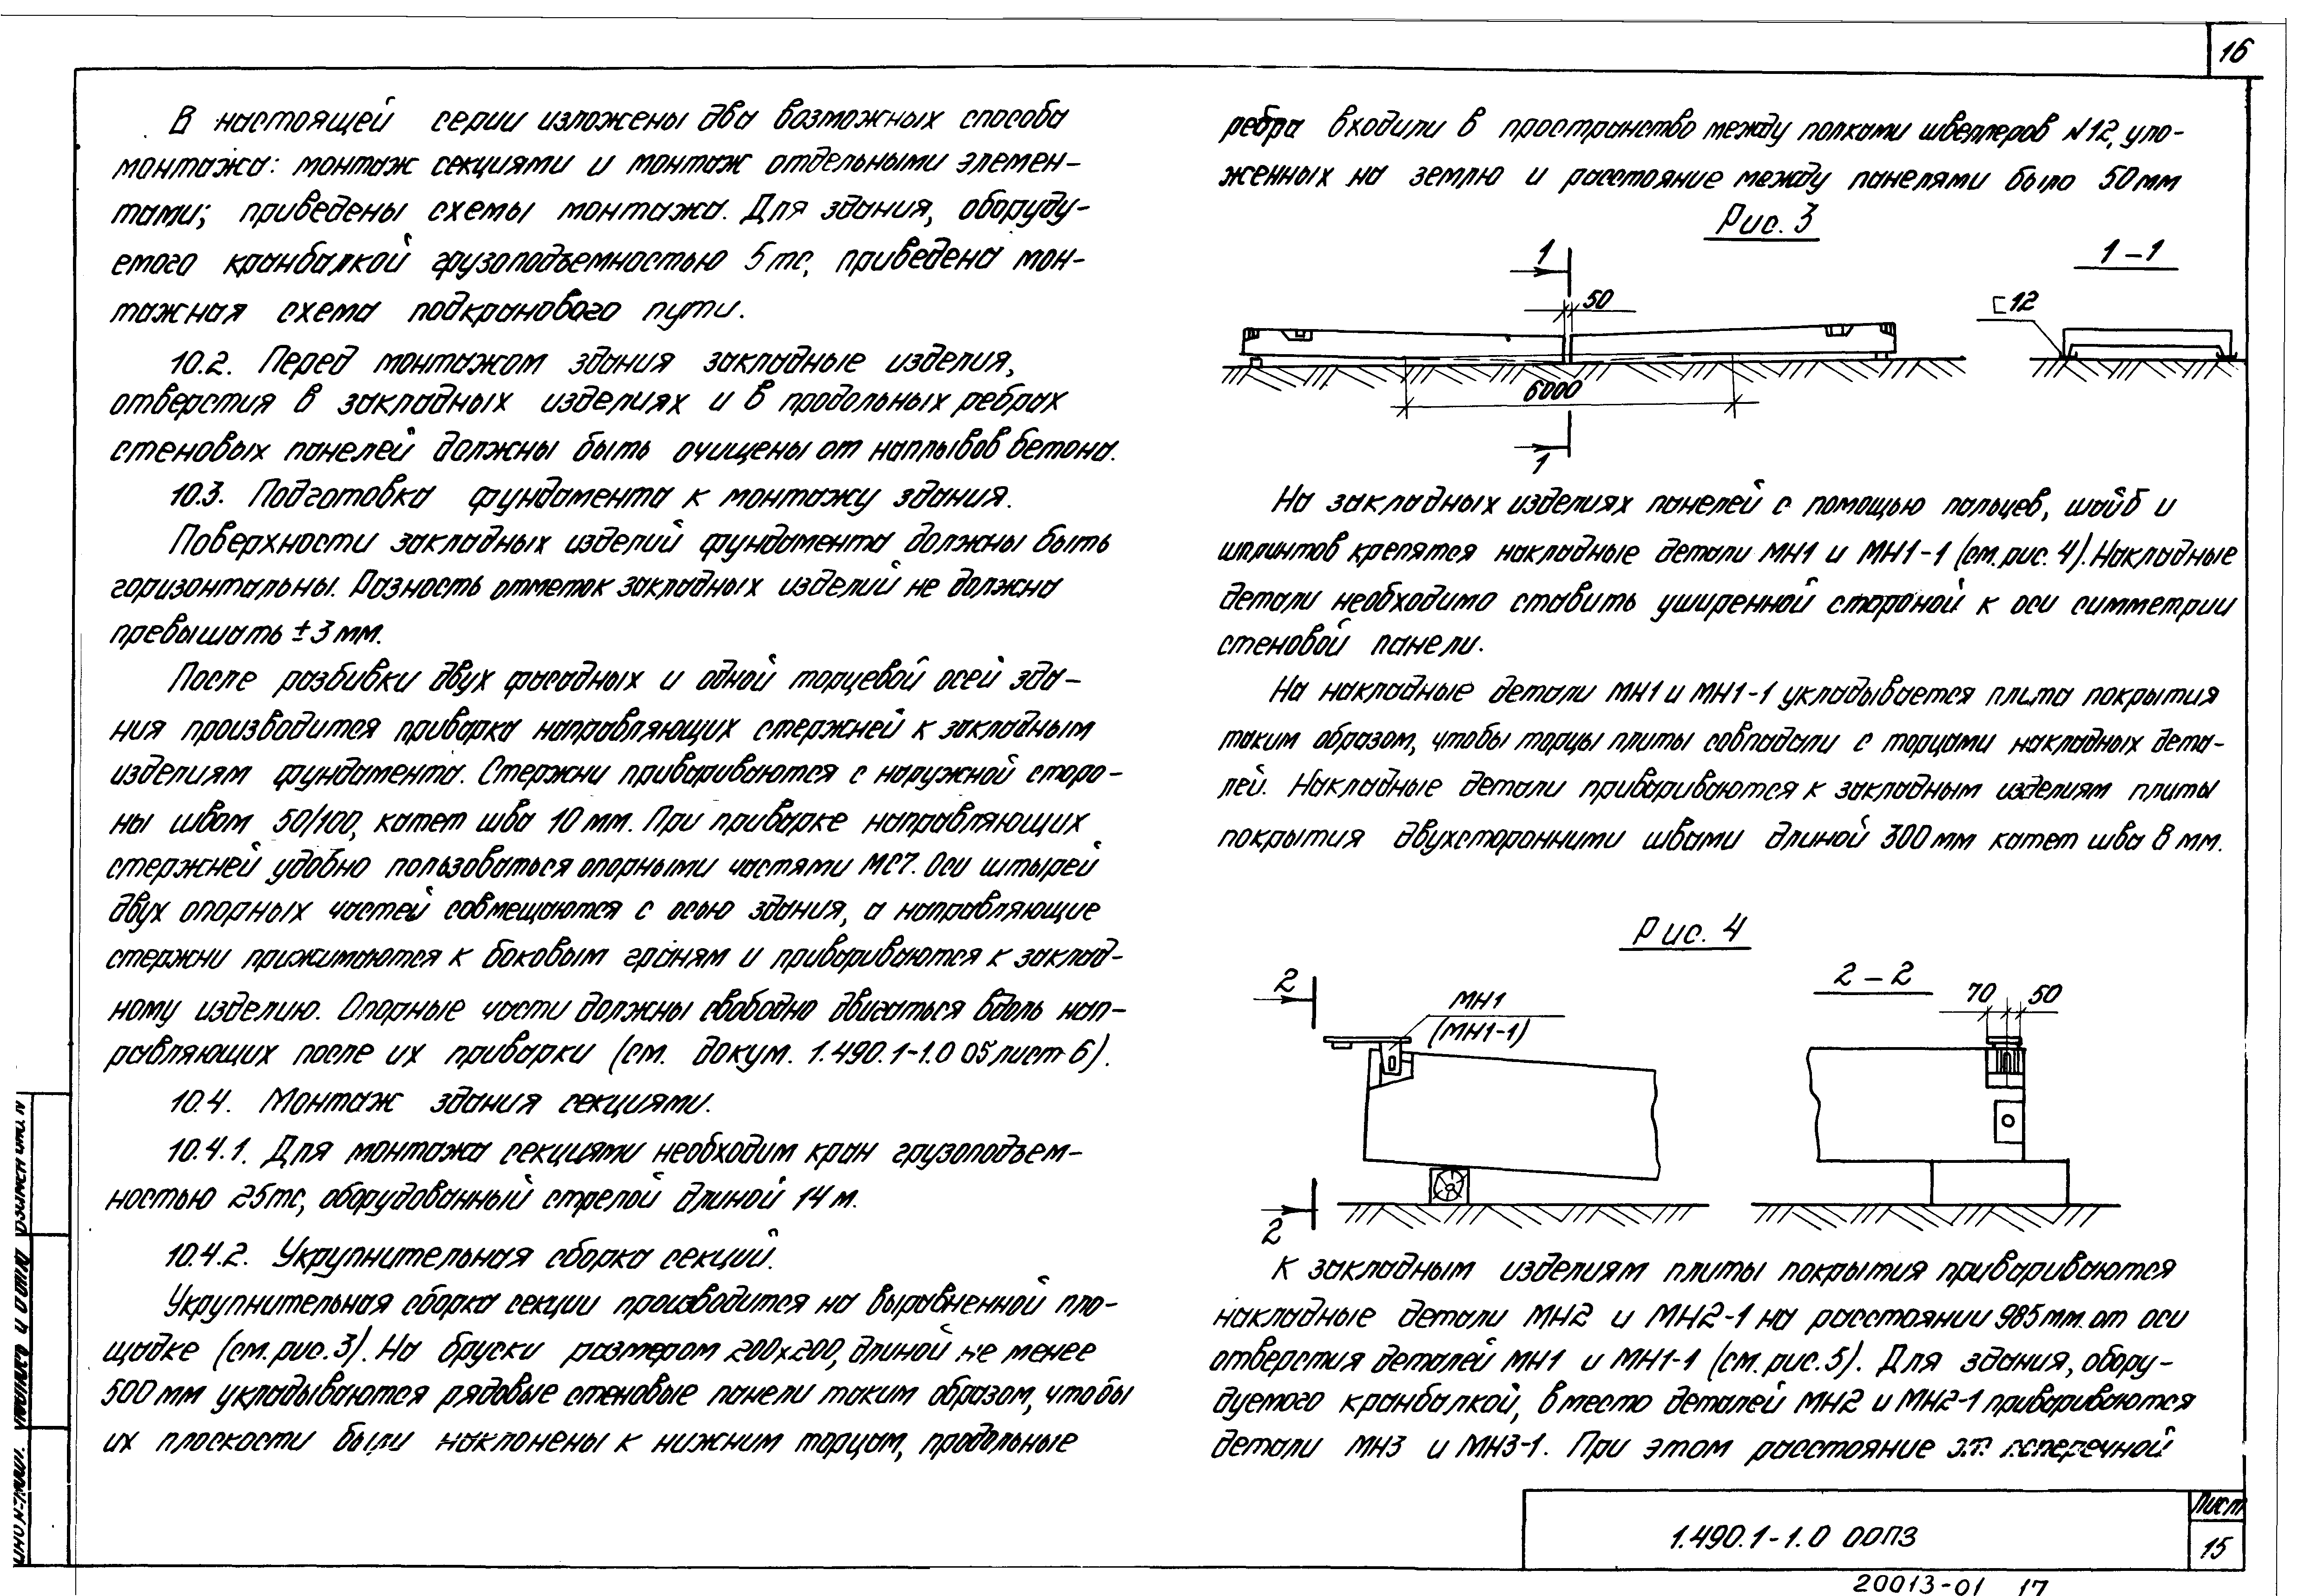 16
В настоящей серии изложены два возможных способа
монтажа: монтаж секциями и монтаж отдельными элемен-
тами; приведены схемы монтажа. Для здания, оборуду-
емого кранбалкой грузоподъемностью 5тс, приведена мон-
тажная схема подкранового пути.
10.2. Перед монтажом здания закладные изделия,
отверстия в закладных изделиях и в продольных ребрах
стеновых панелей должны быть очищены от наплывов бетона.
10.3. Подготовка фундамента к монтажу здания.
Поверхности закладных изделий фундамента должны быть
горизонтальны. Разность отметок закладных изделий не должна
превышать ±3 мм.
После разбивки двух фасадных и одной торцевой осей зда-
ния производится приварка направляющих стержней к закладным
изделиям фундамента. Стержни привариваются с наружной сторо-
ны швом 50/100, катет шва 10 мм. При приварке направляющих
стержней удобно пользоваться опорными частями МС7. Оси штырей
двух опорных частей совмещаются с осью здания, а направляющие
стержни прижимаются к боковым граням и привариваются к заклад-
ному изделию. Опорные части должны свободно двигаться вдоль нап-
равляющих после их приварки (см. докум. 1.490.1-1.0 05 лист 6).
10.4. Монтаж здания секциями.
10.4.1. Для монтажа секциями необходим кран грузоподъем-
ностью 25тс, оборудованный стрелой длиной 14 м.
10.4.2. Укрупнительная сборка секций.
Укрупнительная сборка секции производится на выравненной пло-
щадке (см. рис. 3). На бруски размером 200х200, длиной не менее
500 мм укладываются рядовые стеновые панели таким образом, чтобы
их плоскости были наклонены к нижним торцам, продольные
ребра входили в пространство между полками швеллеров №12, уло-
женных на землю и расстояние между панелями было 50 мм
Рис. 3
1
1-1
50
⊏12
6000
1
На закладных изделиях панелей с помощью пальцев, шайб и
шплинтов крепятся накладные детали МН1 и МН1-1 (см. рис. 4). Накладные
детали необходимо ставить уширенной стороной к оси симметрии
стеновой панели.
На накладные детали МН1 и МН1-1 укладывается плита покрытия
таким образом, чтобы торцы плиты совпадали с торцами накладных дета-
лей. Накладные детали привариваются к закладным изделиям плиты
покрытия двухсторонними швами длиной 300 мм катет шва 8 мм.
Рис. 4
2
МН1
(МН1-1)
2-2
70 50
2
К закладным изделиям плиты покрытия привариваются
накладные детали МН2 и МН2-1 на расстоянии 985 мм. от оси
отверстия деталей МН1 и МН1-1 (см. рис. 5). Для здания, обору-
дуемого кранбалкой, вместо деталей МН2 и МН2-1 привариваются
детали МН3 и МН3-1. При этом расстояние от поперечной
1.490.1-1.0 00ПЗ
Лист
15
20013-01 17
Подпись и дата